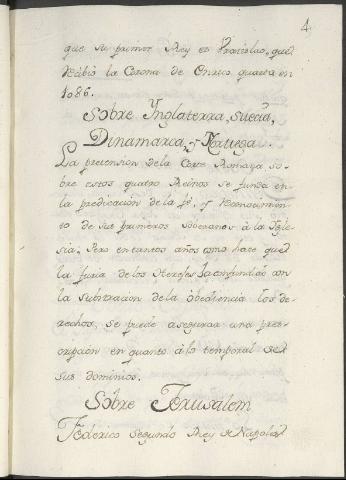 4
que su primer Rey es Vratislao, que re
cibió la Corona de Enrico quarto en
1086.
Sobre Ynglaterra, Suecia,
Dinamarca, y Noruega.
La pretension de la Corte Romana so-
bre estos quatro Reinos se funda en
la predicacion de la fé, y reconocimien
to de sus primeros soberanos à la Igle
sia. Pero en tantos años como hace que
la furia de los Hereges la confundió con
la substracion de la obediencia los de-
rechos, se puede asegurar una pres-
cripcion en quanto à lo temporal de
sus dominios.
Sobre Jerusalem
Federico segundo Rey de Napoles